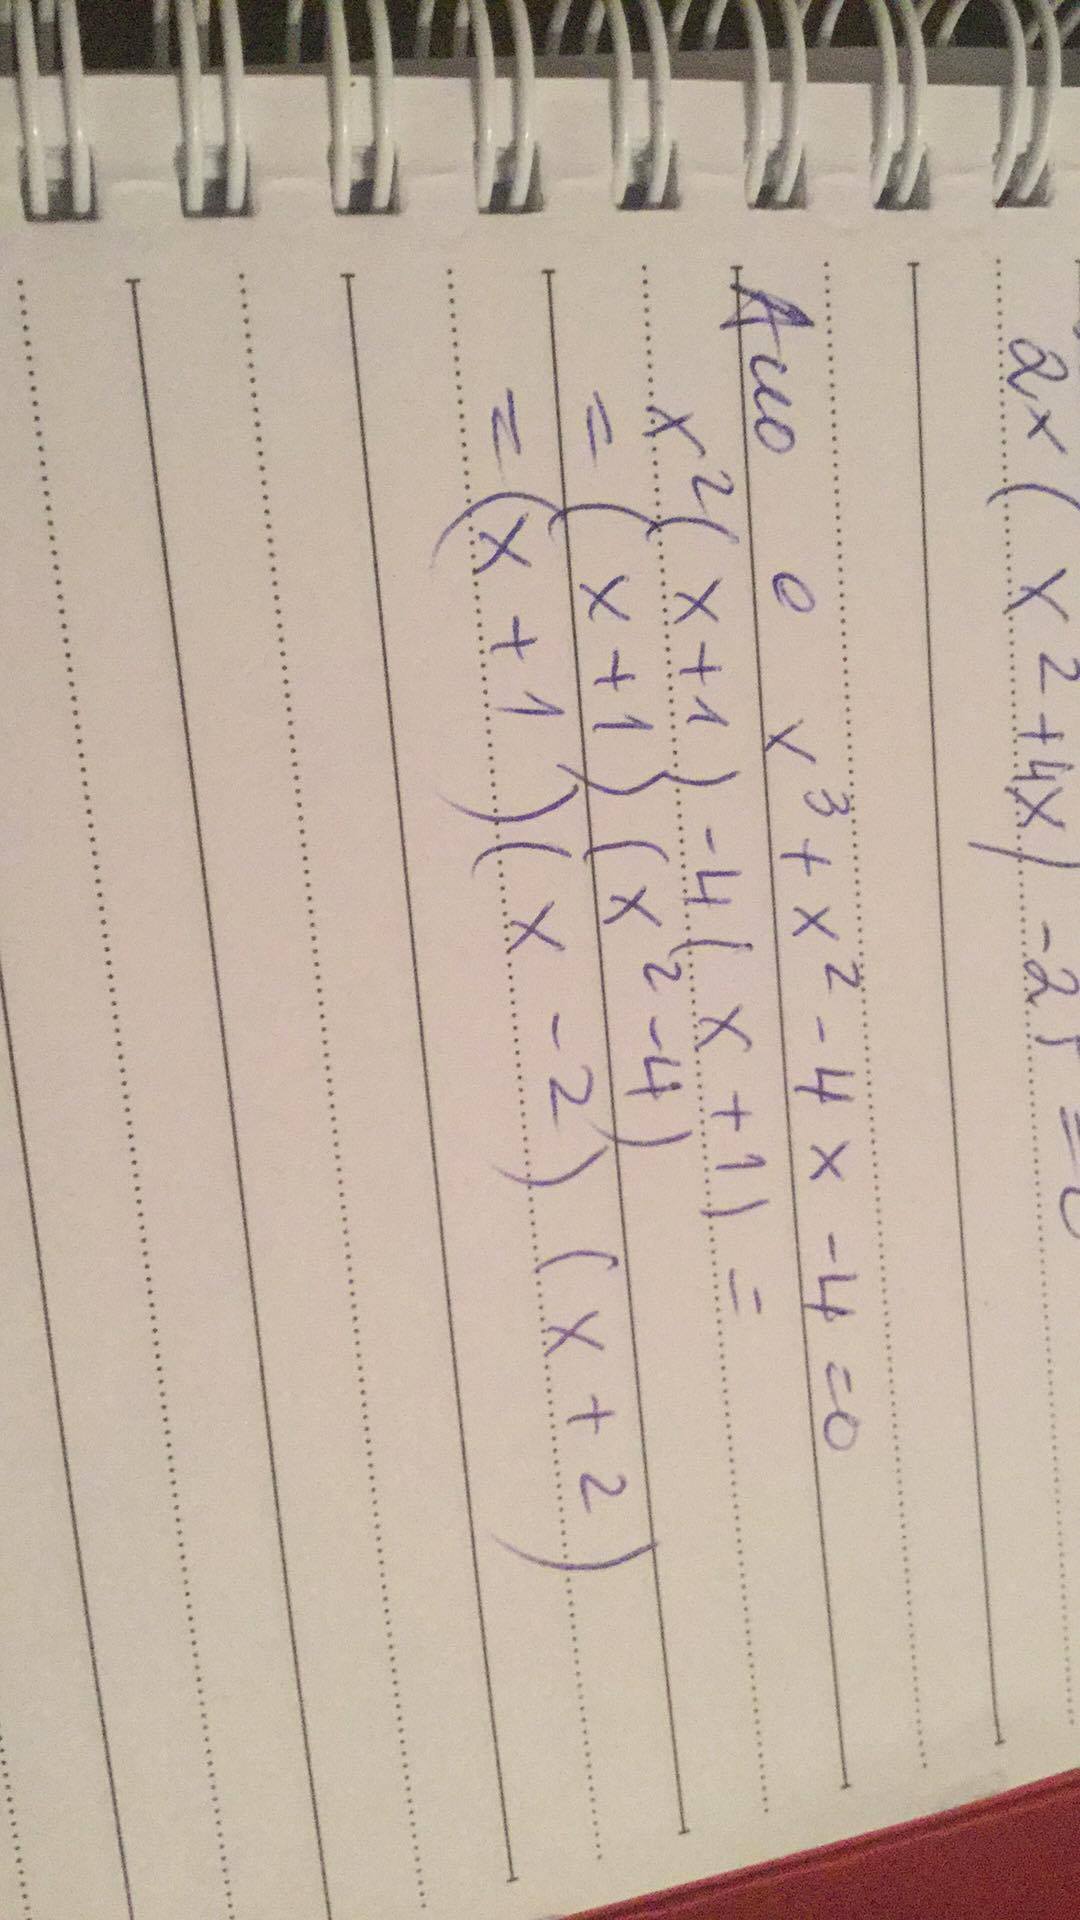 2x ( x² + 4x ) - 25 = 0
Ако е x³ + x² - 4x - 4 = 0
x² ( x + 1 ) - 4 ( x + 1 ) =
= ( x + 1 ) ( x² - 4 )
= ( x + 1 ) ( x - 2 ) ( x + 2 )